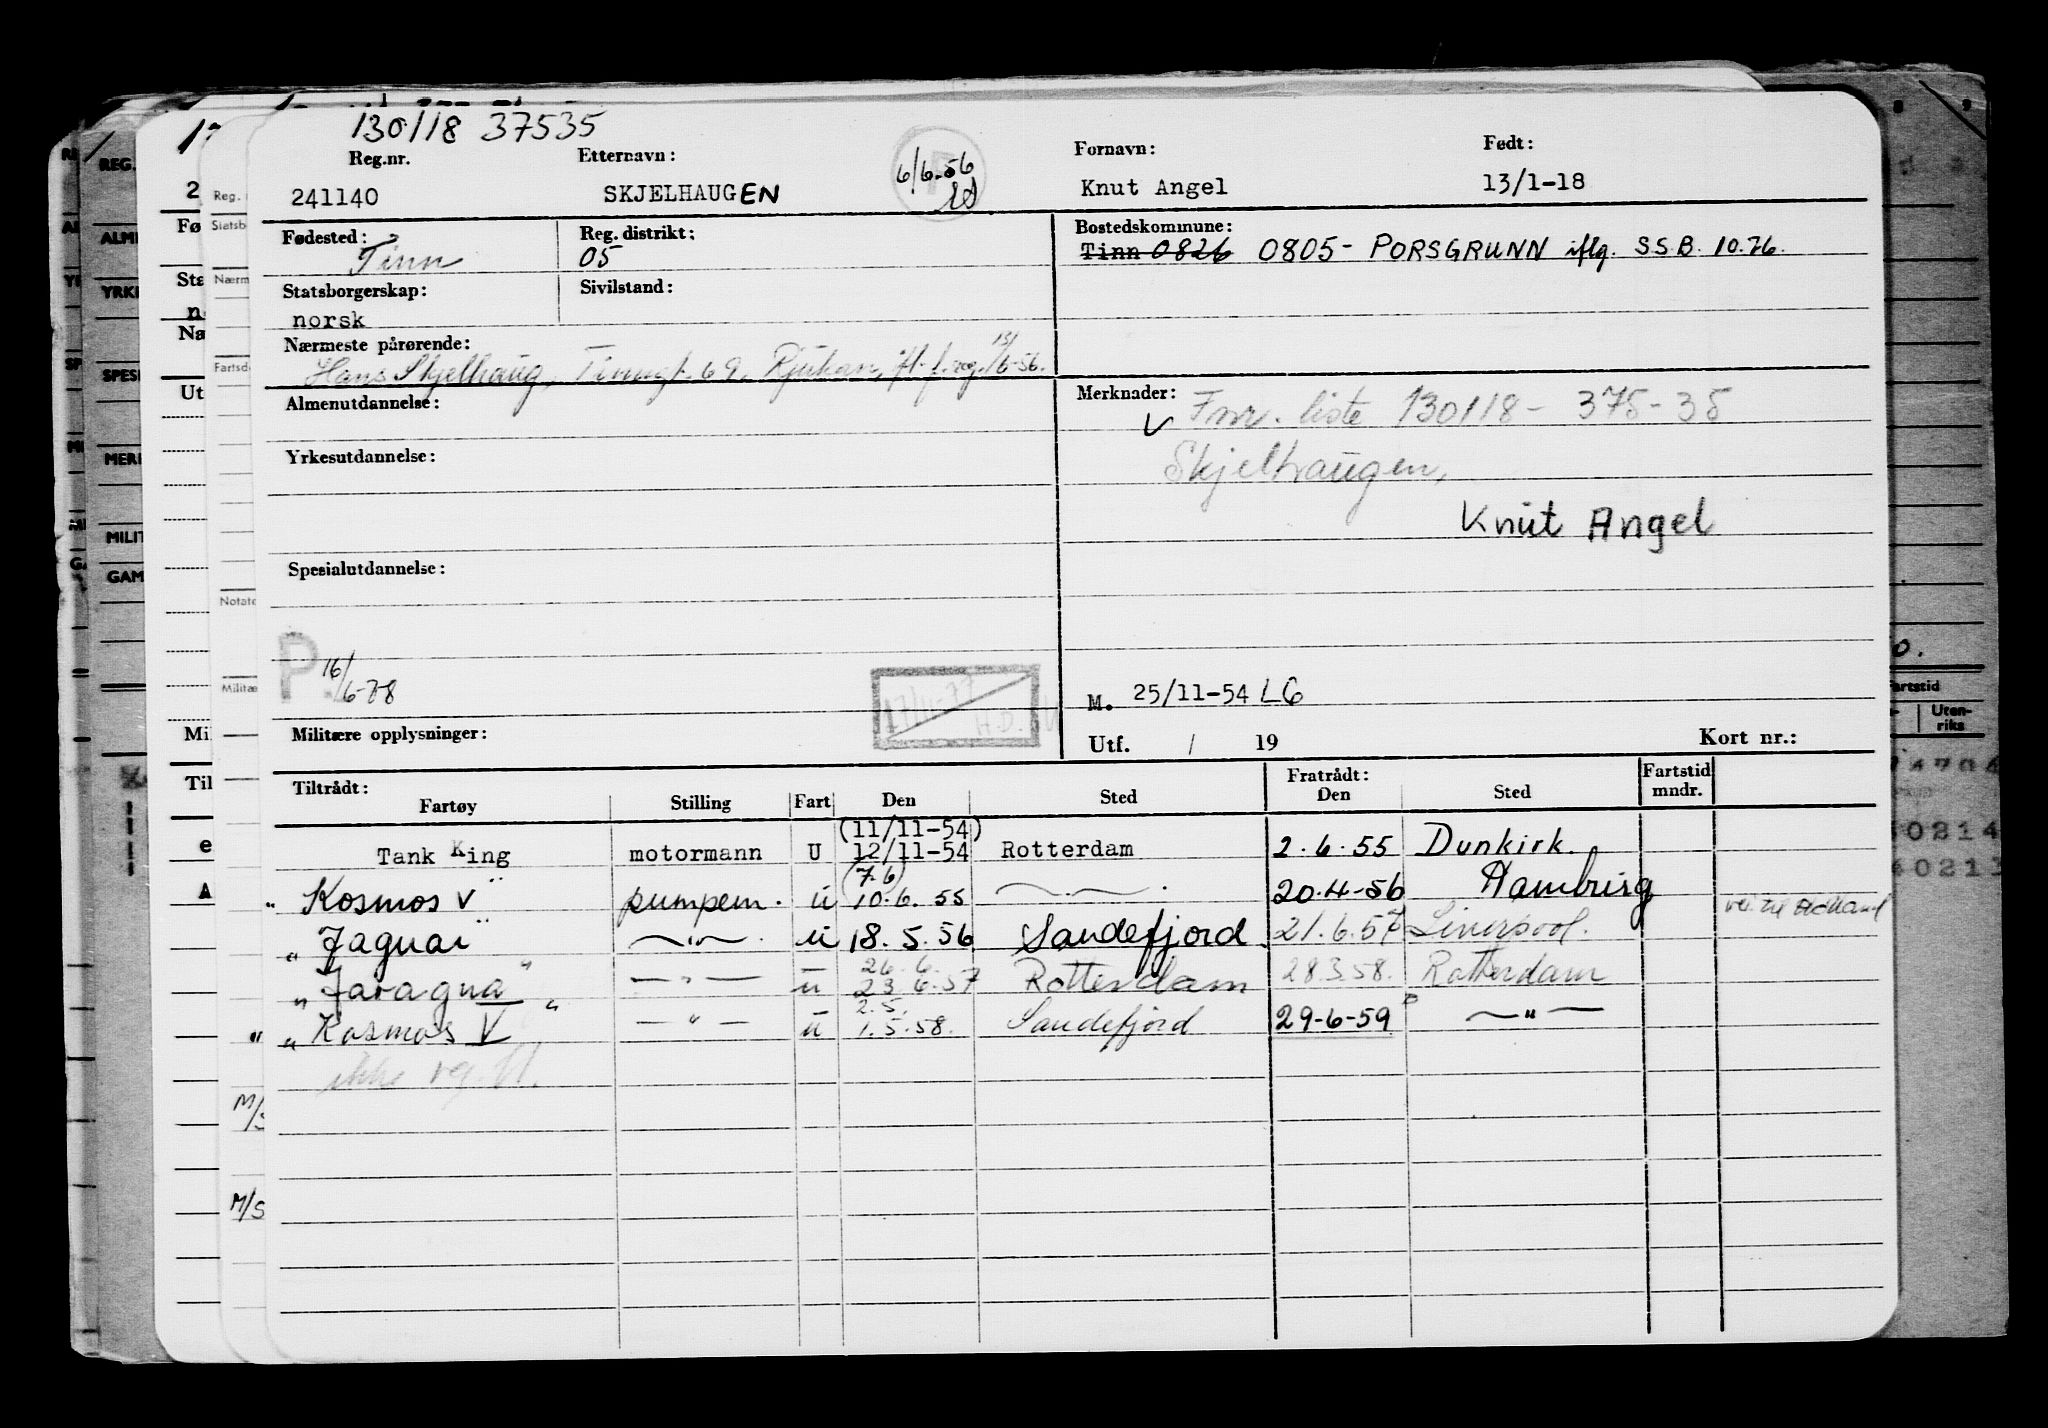 130118 37535
Reg.nr. Etternavn: Fornavn: Født:
241140 SKJELHAUGEN 6/6-56 Knut Angel 13/1-18
Fødested: Tinn
Reg. distrikt: 05
Bostedskommune:
Tinn 0826 0805 - PORSGRUNN iflg. S.S.B. 10.76.
Statsborgerskap: Sivilstand:
norsk
Nærmeste pårørende:
Hans Skjelhaug, Tinngt. 69, Rjukan, ift. f.reg. 13/6-56.
Almenutdannelse:
Merknader:
Fnr. liste 130118 - 375-35
Skjelhaugen,
Knut Angel
Yrkesutdannelse:
Spesialutdannelse:
P. 16/6-78
17/11-77 H.D.
M. 25/11-54 LG
Militære opplysninger:
Utf. / 19 Kort nr.:
Tiltrådt: Fratrådt: Fartstid
Fartøy Stilling Fart Den Sted Den Sted mndr.
(11/11-54)
Tank King motormann U 12/11-54 Rotterdam 2.6.55 Dunkirk.
(7.6)
" Kosmos V" pumpem. u 10.6.55 —〃— 20.4-56 Hamburg
" Jaguar" —〃— u 18.5.56 Sandefjord 21.6.57 Liverpool.
26.6.
" Jaragua" —〃— u 23.6.57 Rotterdam 28.3.58. Rotterdam
2.5.
" Kosmos V" —〃— u 1.5.58. Sandefjord 29-6-59 —〃—
ikke reg.